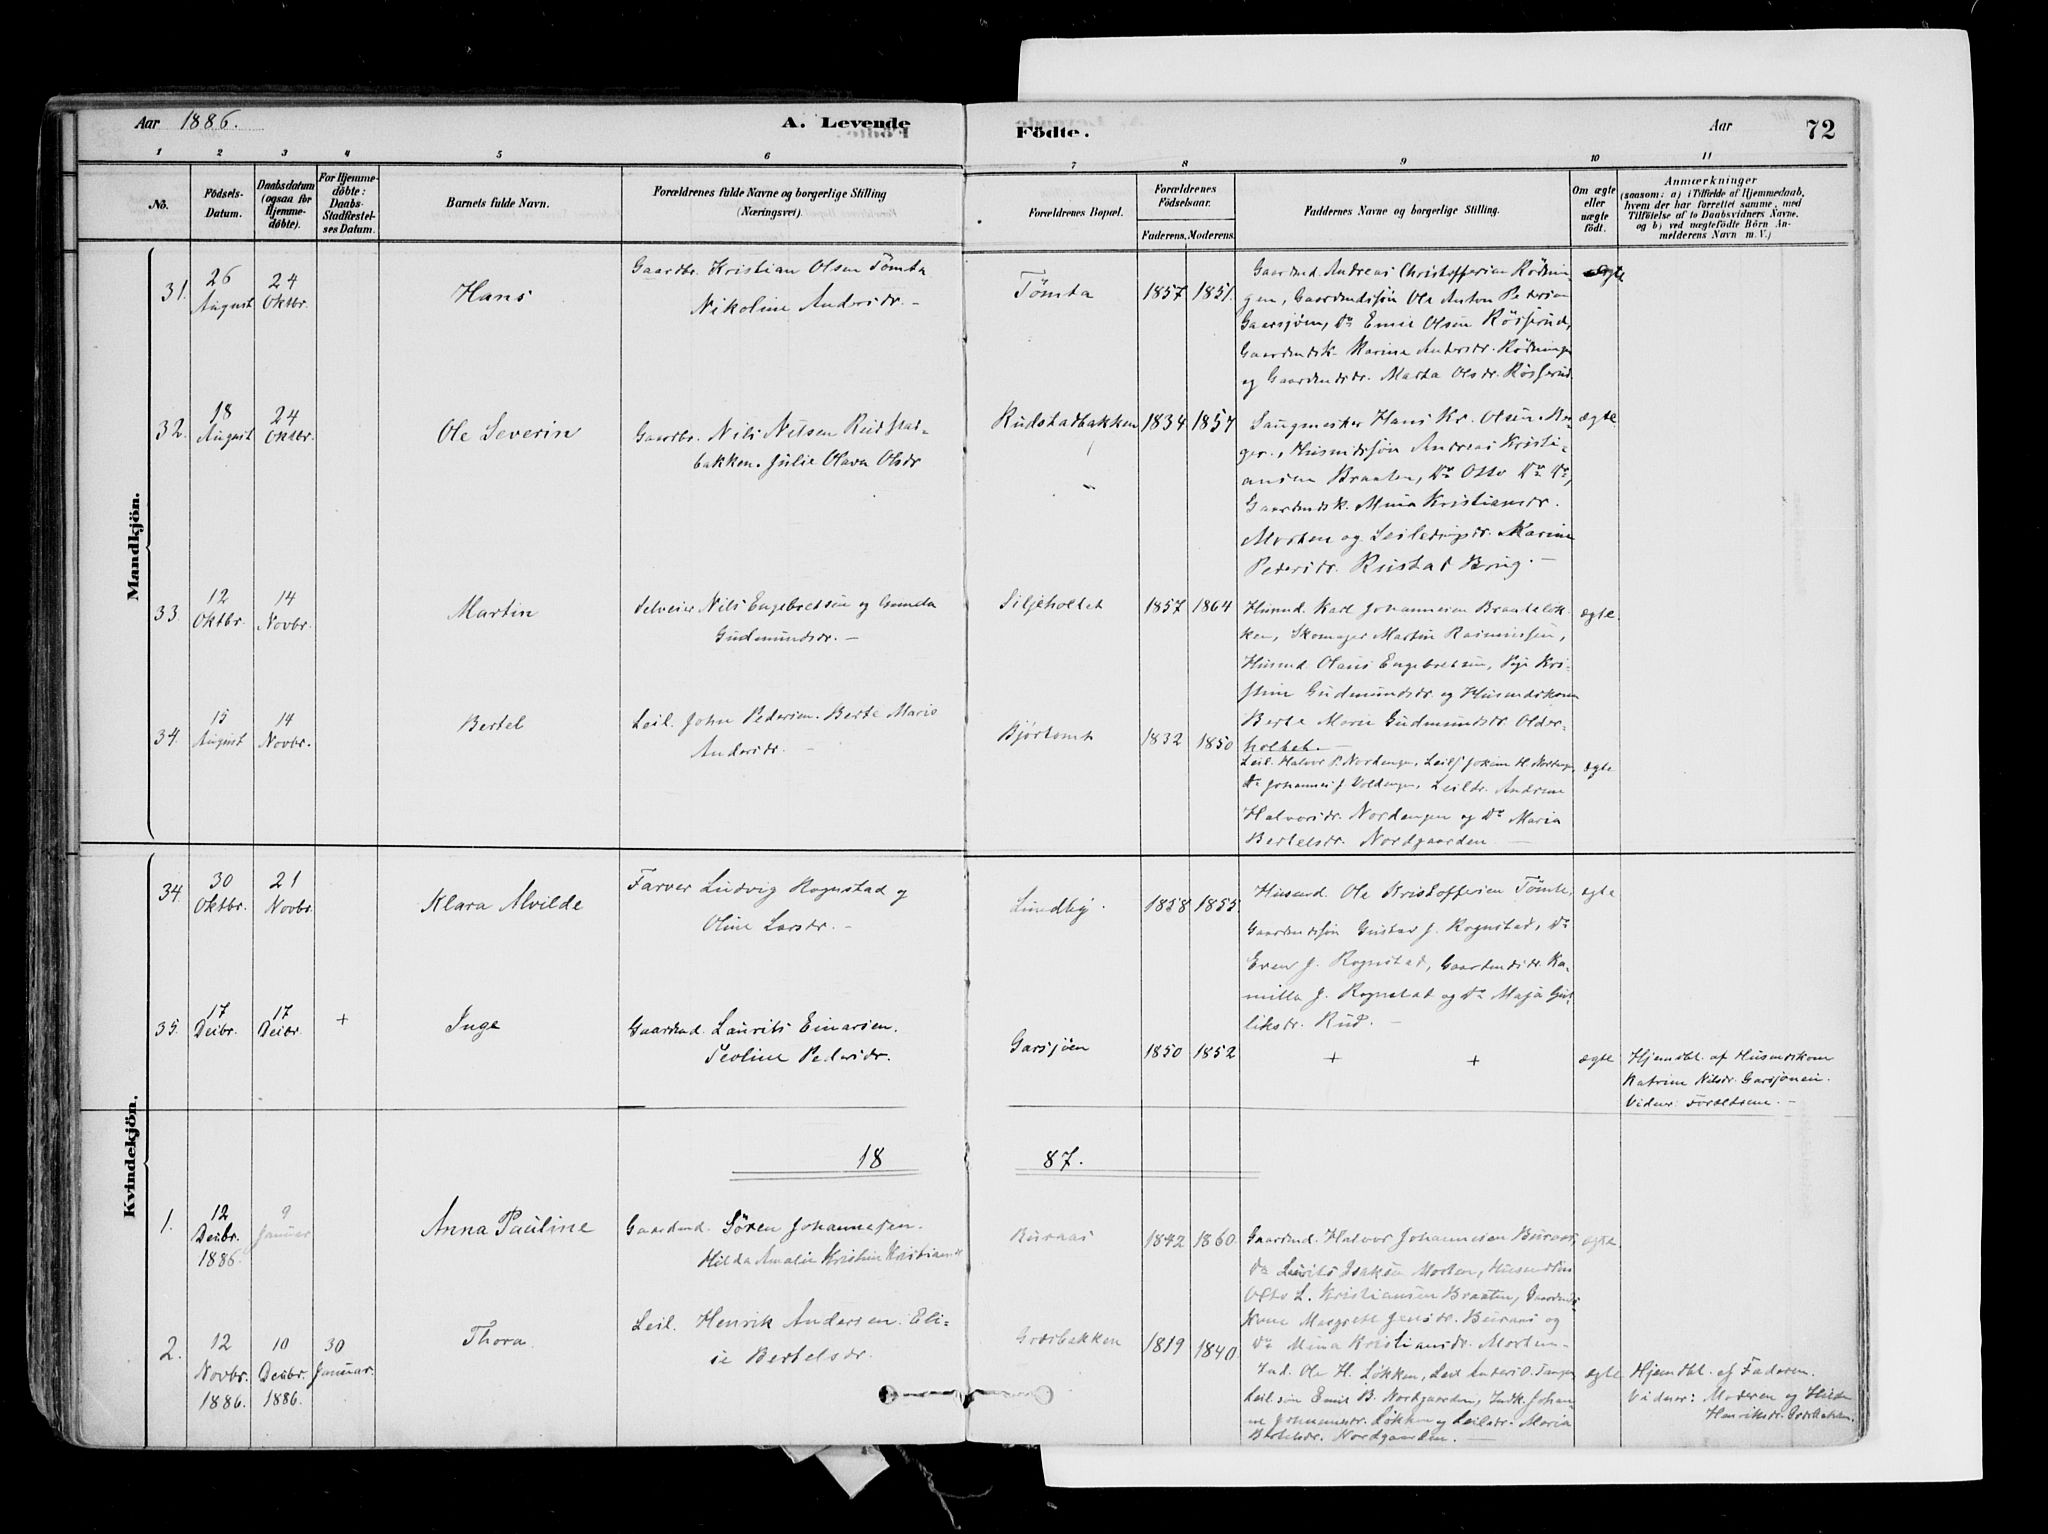 Aar 1886. A. Levende Födte. Aar 72
1 2 3 4 5 6 7 8 9 10 11
No.
Födsels-
Datum.
Daabsdatum
(ogsaa for
Hjemme-
döbte).
For Hjemme-
döbte:
Daabs-
Stadfæstel-
ses Datum.
Barnets fulde Navn.
Forældrenes fulde Navne og borgerlige Stilling
(Næringsvei).
Forældrenes Bopæl.
Forældrenes
Födselsaar.
Faderens. Moderens.
Faddernes Navne og borgerlige Stilling.
Om ægte
eller
uægte
födt.
Anmærkninger
(saasom: a) i Tilfælde af Hjemmedaab,
hvem der har forrettet samme, med
Tilföielse af to Daabsvidners Navne.
og b) ved uægtefödte Börn An-
melderens Navn m. V.)
Mandkjön.
31.
26
August
24
Oktbr.
Hans
Gaardbr. Kristian Olsen Tömta
Nikoline Andersdr. -
Tömta
1857 1851.
Gaardmd. Andreas Christoffersen Rödnin-
gen, Gaardmdssön Ole Anton Pedersen
Gaarsjøen, Do Emil Olsen Røsserud,
Gaardmdsk. Karina Andersdr. Rødningen
og Gaardmdsdr. Marta Olsdr. Røsserud.
ægte
32.
18
August
24
Oktbr.
Ole Severin
Gaardbr. Nils Nilsen Rudstad-
bakken. Julie Olava Olsdr
Rudstadbakken
1834 1857
Saugmester Hans Kr. Olsen Ber-
ger, Husmdssøn Andreas Kristi-
ansen Braaten, Do Otto Do Do,
Gaardmdsk. Mina Kristiansdr.
Morten og Leilendingsdr. Karine
Pedersdr. Rustad Brug. -
ægte.
33.
12
Oktbr.
14
Novbr.
Martin
Selveier Nils Engebretsen og Gunda
Gudmundsdr. -
Siljeholtet
1857 1864
Husmd. Karl Johannesen Braateløk-
ken, Skomager Martin Rasmussen,
Husmd. Olaus Engebretsen, Pige Kri-
stine Gudmundsdr og Husmdskonen
Berte Marie Gudmundsdr Older-
holtet. -
ægte.
34.
15
August
14
Novbr.
Bertel
Leil. John Pedersen. Berte Maria
Andersdr. -
Bjørtomt
1832 1850
Leil. Halvor P. Nordengen, Leils. Jokim H. Nordengen,
Do Johannes J. Voldengen, Leildr. Andrine
Halvorsdr. Nordengen og Do Maria
Bertelsdr. Nordgaarden -
ægte
Kvindekjön.
34.
30
Oktbr.
21
Novbr.
Klara Alvilde
Farver Ludvig Rognstad og
Oline Larsdr. -
Lundby.
1858 1855.
Husmd. Ole Kristoffersen Tömte,
Gaardmdssøn Gustav J. Rognstad, Do
Even J. Rognstad, Gaardmdsdr. Ka-
milla J. Rognstad og Do Maja Gul-
liksdr. Rud. -
ægte
35.
17
Decbr.
17
Decbr.
+
Inga
Gaardmd. Laurits Einarsen.
Peoline Pedersdr.
Garsjøen
1850 1852
+ +
ægte
Hjemdbt. af Husmdskone
Katrine Nilsdr. Garsjøneie.
Vidner: Forældrene. -
18 87.
1.
12
Decbr.
1886.
9
Januar
Anna Pauline
Gaardmd. Sören Johannesen.
Hilda Amalie Kristine Kristiansdr
Buraas
1842 1860
Gaardmd. Halvor Johannesen Buraas,
Do Laurits Isaksen Morten, Husmdssøn
Otto L. Kristiansen Braaten, Gaardmds-
kone Margrete Jensdr. Buraas og
Do Mina Kristiansdr. Morten -
ægte.
2.
12
Novbr.
1886.
10
Decbr.
1886.
30
Januar.
Thora
Leil. Henrik Andersen. Eli-
se Bertelsdr.
Græsbakken
1819 1840
Ind. Ole H. Løkken, Leil Anders O. Tangen
Leil.søn Emil B. Nordgaarden, Indk. Johan-
ne Johannesdr. Løkken og Leilsdr. Maria
Bertelsdr. Nordgaarden. -
ægte
Hjemdbt. af Faderen.
Vidner: Moderen og Hilda
Henriksdr. Græsbakken.